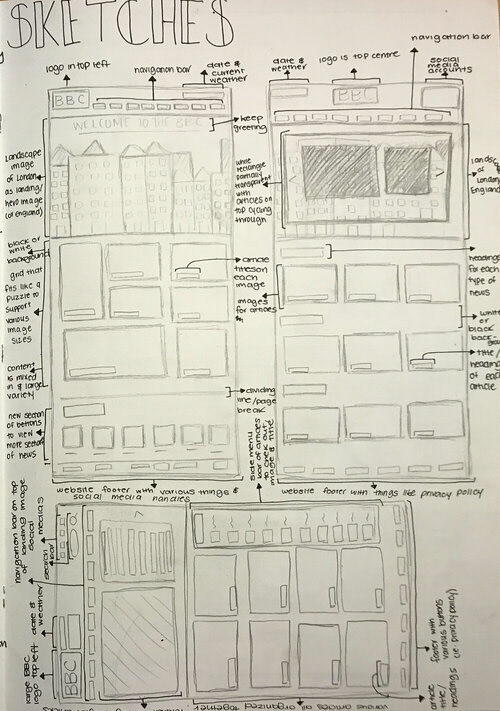 SKETCHES
logo in top left
navigation bar
date &
current
weather
date &
weather
logo is top centre
navigation bar
social
media
accounts
BBC
BBC
WELCOME TO THE BBC
keep
greeting
Landscape
image
of London
as landing/
hero image
(or England)
white
rectangle
partially
transparent
with
articles on
top cycling
through
landscape
of London/
England
black or
white
background
grid that
fits like a
puzzle to
support
various
image
sizes
article
titles on
each
image
images
for articles
headings
for each
type of
news
white
or
black
back-
ground
content
is mixed
in a large
variety
title/
heading
of each
article
dividing
line/page
break
new section
of buttons
to view
more sections
of news
side menu
bar of articles
to check out
image & title
website footer with various things &
social media handles
website footer with things like privacy policy
navigation bar on top
of landing image
social
medias
search
bar
date &
weather
large BBC
logo top left
BBC
footer with
various buttons
(ie: privacy policy)
article
title/
headings
various articles all organized together